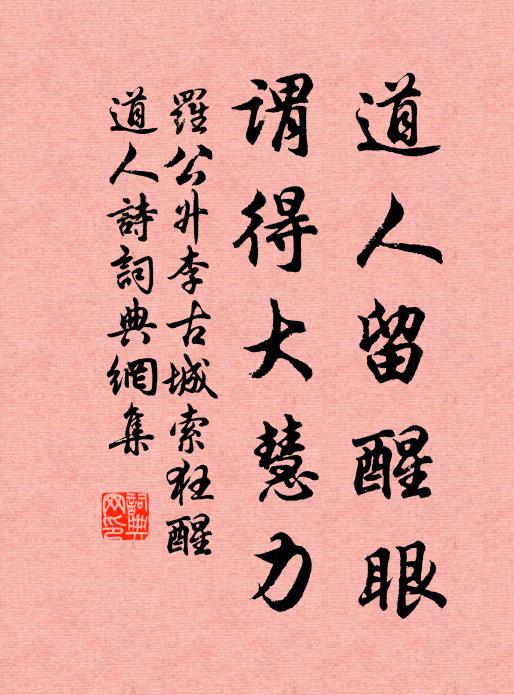 道人留醒眼
謂得大慧力
羅公升李古城索狂醒
道人詩詞典網集
詞典網印